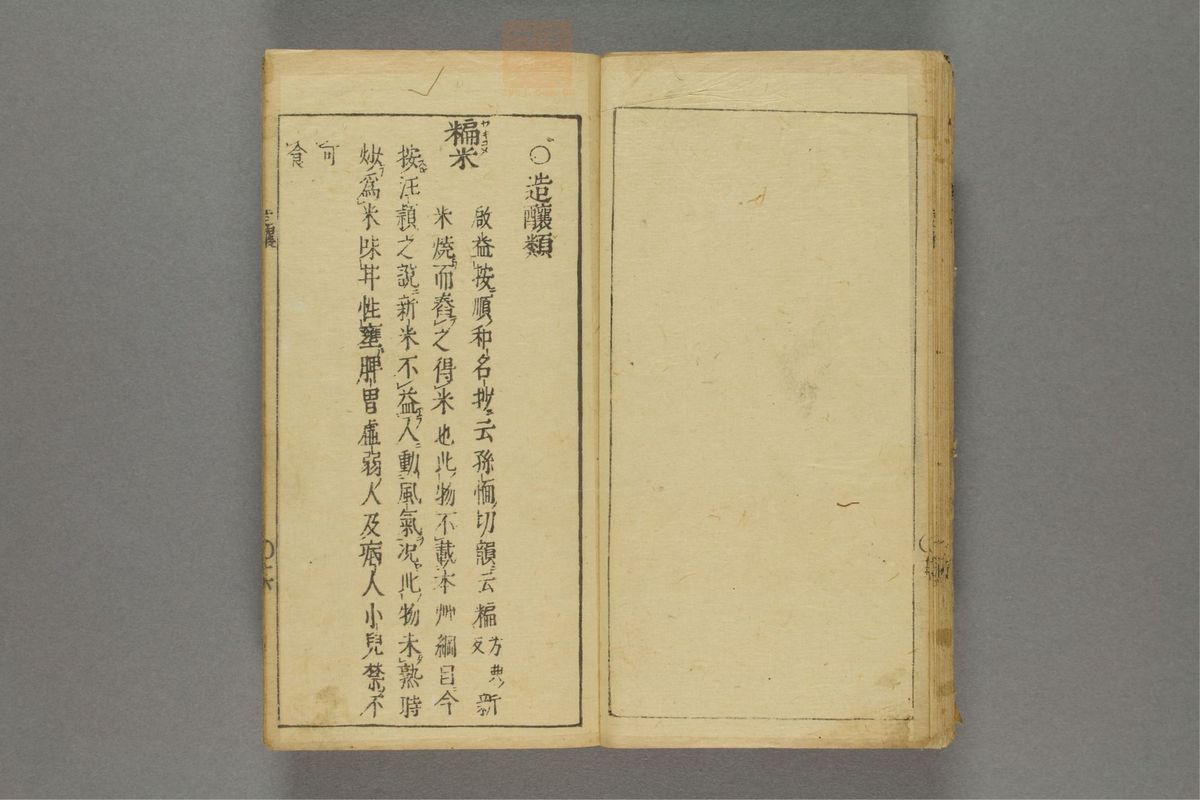 ○造釀類
糄米 ヤキコメ
啟益按順和名抄ニ云孫愐切韻ニ云糄方典反新
米燒而舂之得米也此物不載本艸綱目今
按汪頴之說新米不益人動風氣况此物未熟時
炒爲米味甘性壅脾胃虛弱人及病人小兒禁不
可
食